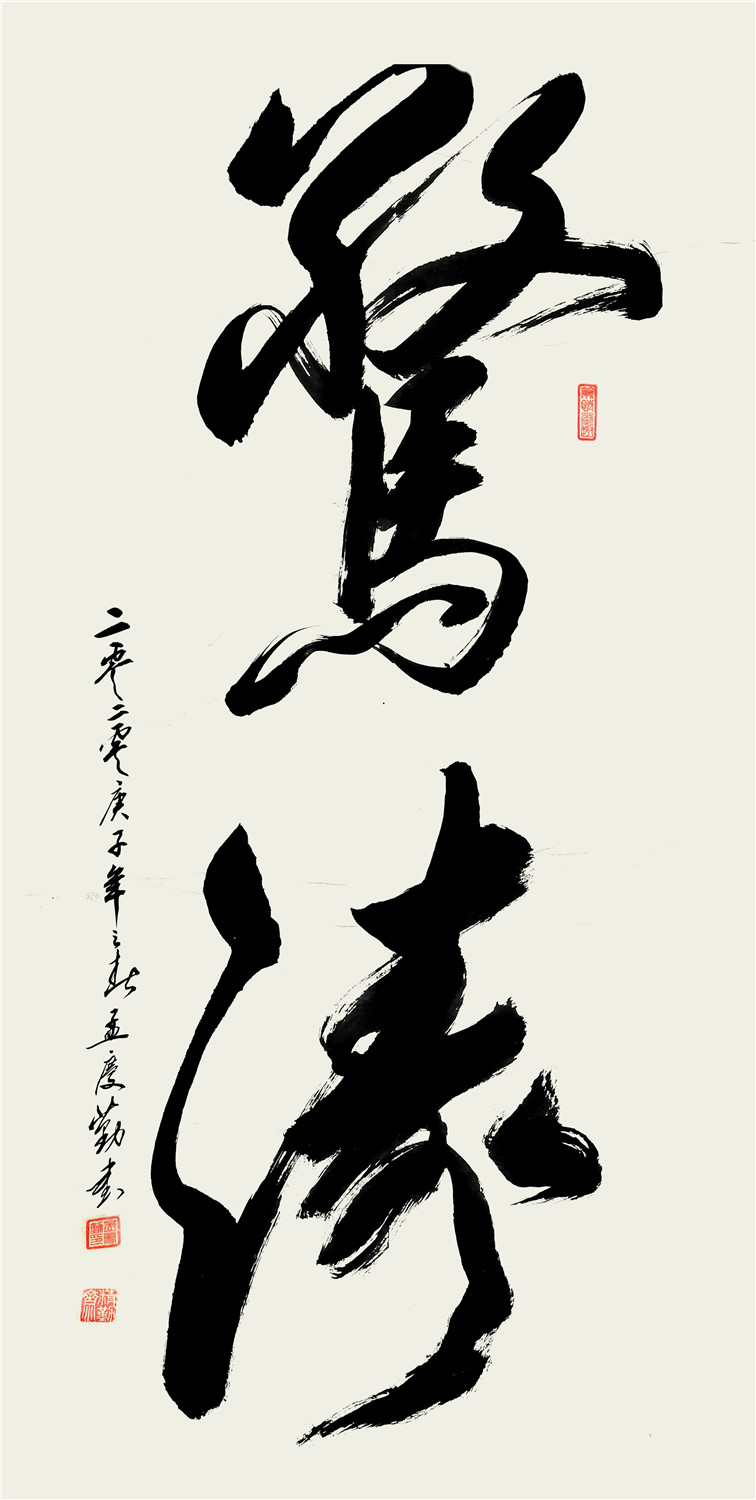 驚濤
二零二零庚子年之春孟慶勤書